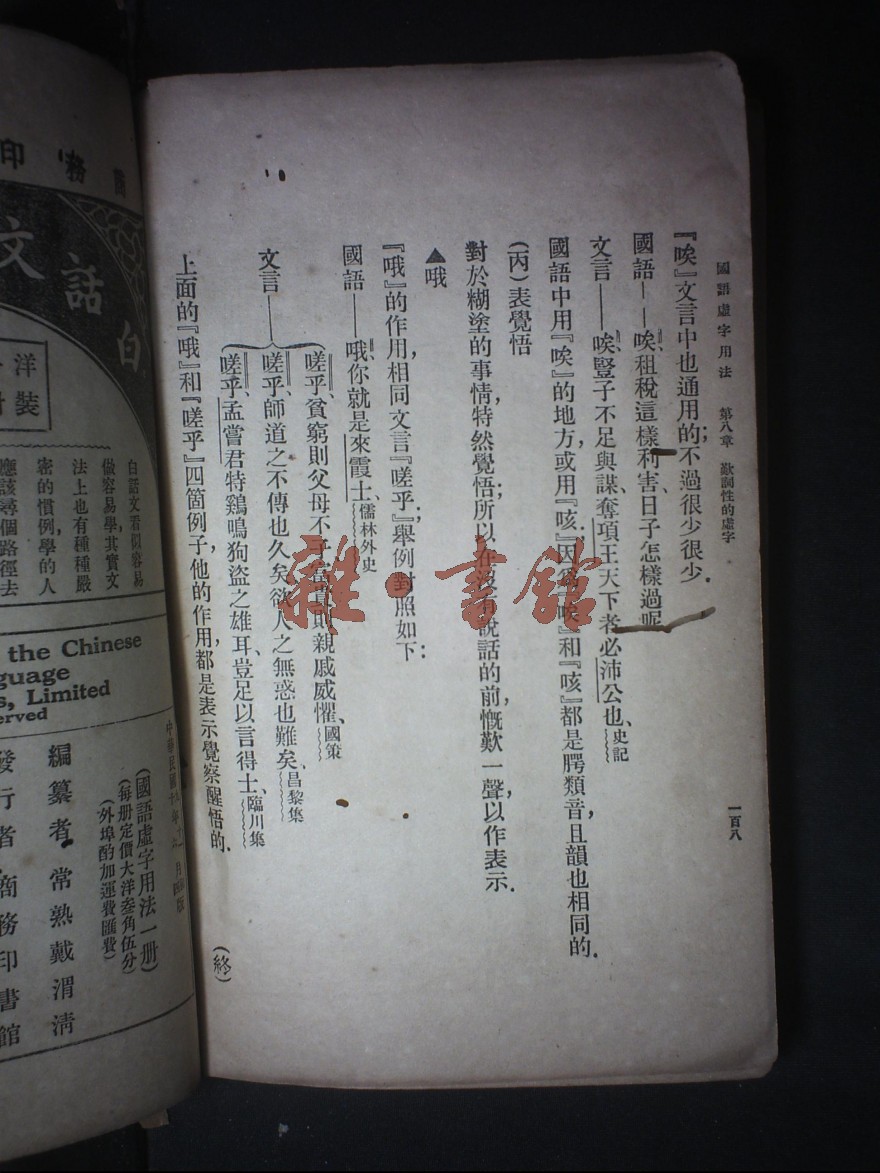 國語虛字用法　第八章　歎詞性的虛字
一百八
『唉』文言中也通用的;不過很少很少.
國語——唉、租稅這樣利害、日子怎樣過呢
文言——唉、豎子不足與謀、奪項王天下者必沛公也、史記
國語中用『唉』的地方,或用『咳』因爲『唉』和『咳』都是腭類音且韻也相同的.
(丙)表覺悟
對於糊塗的事情,特然覺悟;所以在沒有說話的前,慨歎一聲,以作表示.
▲哦
『哦』的作用,相同文言『嗟乎』;舉例對照如下:
國語——哦、你就是來霞士、儒林外史
文言——
嗟乎、貧窮則父母不子 則親戚威懼、國策
嗟乎、師道之不傳也久矣、欲人之無惑也難矣、昌黎集
嗟乎、孟嘗君特鷄鳴狗盜之雄耳、豈足以言得士、臨川集
上面的『哦』和『嗟乎』四箇例子,他的作用,都是表示覺察醒悟的.
(終)
雜·書館
印務
白話文
洋裝
白話文看似容易
做容易學,其實文
法上也有種種嚴
密的慣例,學的人
應該尋個路徑去
the Chinese
guage
s, Limited
erved
中華民國十年
(國語虛字用法一册)
(每册定價大洋叁角伍分)
(外埠酌加運費匯費)
編纂者 常熟戴渭淸
發行者 商務印書館